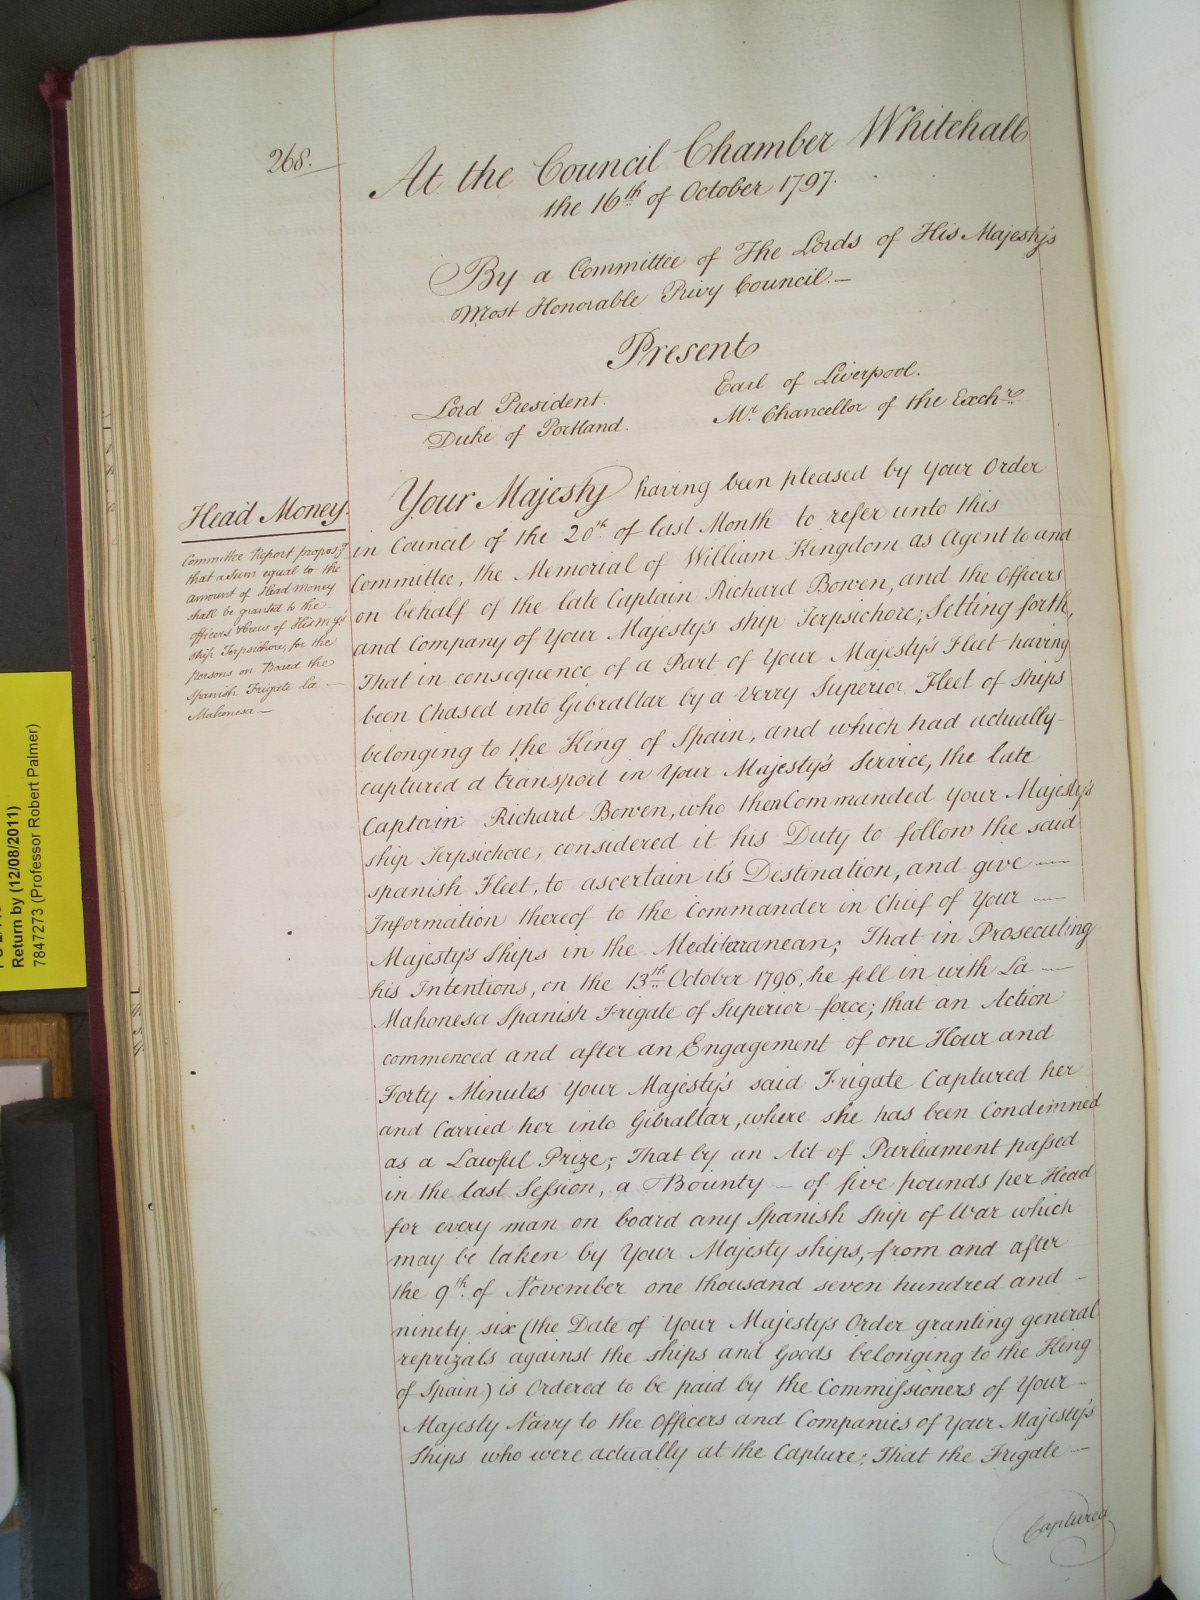 268.
At the Council Chamber Whitehall
the 16th of October 1797.
By a Committee of The Lords of His Majesty's
Most Honorable Privy Council.—
Present
Lord President.
Duke of Portland.
Earl of Liverpool.
Mr. Chancellor of the Exchr.
Head Money.
Committee Report proposg
that a sum equal to the
amount of Head Money
shall be granted to the
officers & Crew of His My's
ship Terpsichore, for the
Persons on Board the
Spanish Frigate La —
Mahonesa —
Your Majesty having been pleased by Your Order
in Council of the 20th. of last Month to refer unto this
Committee, the Memorial of William Kingdom as Agent to and
on behalf of the late Captain Richard Bowen, and the Officers
and Company of Your Majesty's ship Terpsichore; Setting forth,
That in consequence of a Part of Your Majesty's Fleet having
been Chased into Gibraltar by a Verry Superior Fleet of Ships
belonging to the King of Spain, and which had actually—
captured a transport in Your Majesty's Service, the late
Captain Richard Bowen, who then Commanded Your Majesty's
ship Terpsichore, considered it his Duty to follow the said
spanish Fleet, to ascertain it's Destination, and give —
Information thereof to the Commander in Chief of Your —
Majesty's Ships in the Mediterranean; That in Prosecuting
his Intentions, on the 13th October 1796, he fell in with La —
Mahonesa Spanish Frigate of Superior force; that an Action
commenced and after an Engagement of one Hour and
Forty Minutes Your Majesty's said Frigate Captured her
and Carried her into Gibraltar, where she has been Condemned
as a Lawful Prize; That by an Act of Parliament passed
in the last Session, a Bounty — of five pounds per Head
for every man on board any Spanish Ship of War which
may be taken by Your Majesty ships, from and after
the 9th. of November one thousand seven hundred and —
ninety six (the Date of Your Majesty's Order granting general
reprizals against the ships and Goods belonging to the King
of Spain) is Ordered to be paid by the Commissioners of Your —
Majesty Navy to the Officers and Companies of Your Majesty's
Ships who were actually at the Capture; That the Frigate —
Captured
Return by (12/08/2011)
7847273 (Professor Robert Palmer)